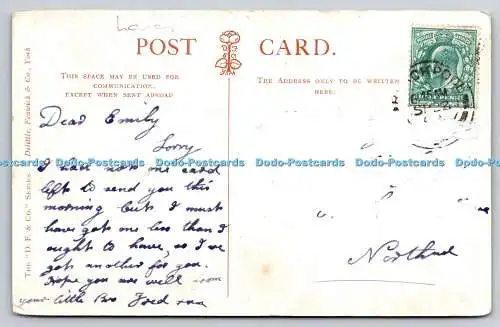 POST CARD.
THIS SPACE MAY BE USED FOR
COMMUNICATION.
EXCEPT WHEN SENT ABROAD
THE ADDRESS ONLY TO BE WRITTEN
HERE:
Dear Emily
Sorry
I had not one card
left to send you this
morning but I must
have got one less than I
ought to have, so I've
got another for you.
Hope you are well from
your little Bro Fred
Northd
THE "D. F. & Co." SERIES Delittle, Fenwick & Co., York
Dodo-Postcards Dodo-Postcards Dodo-Postcards Dodo-Postcards Dodo-Postcards